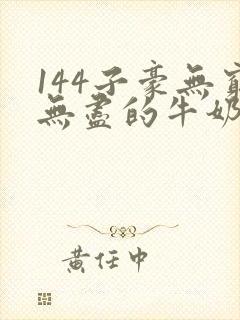 144子豪無窮
無盡的牛奶
黃任中